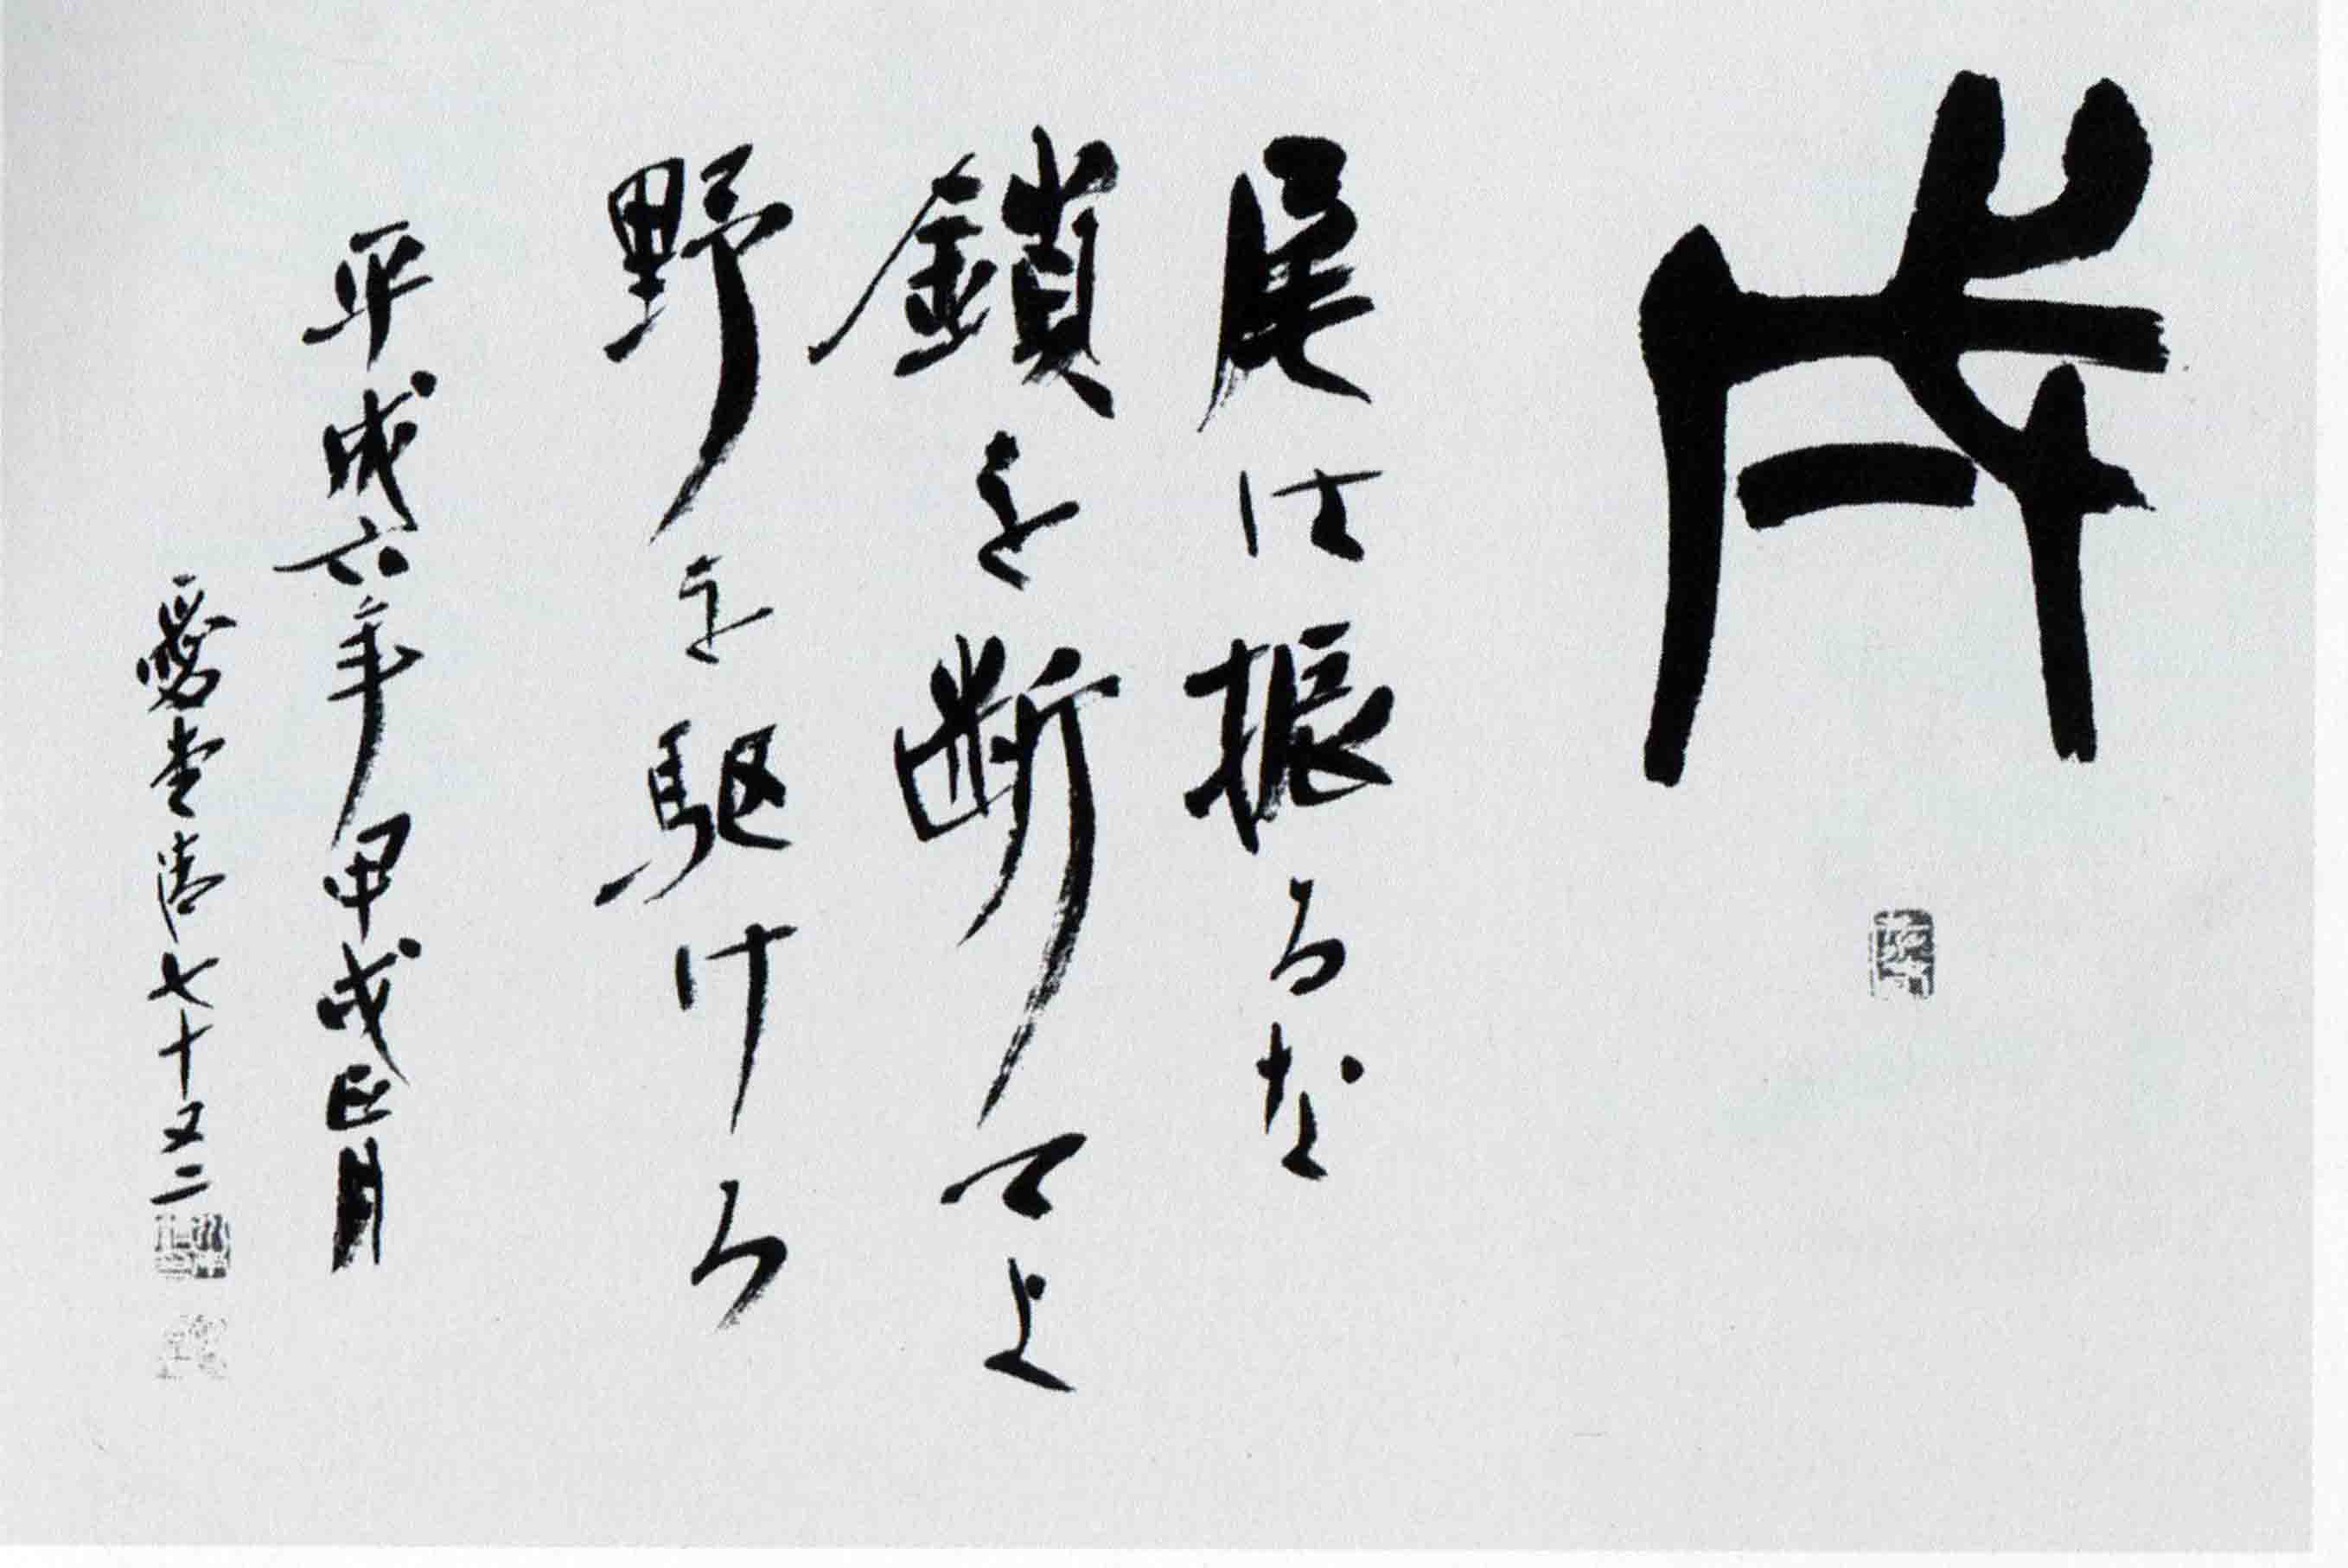 戌
尾は振るな
鎖を断てよ
野を駆けろ
平成六年甲戌正月
愛堂 七十又二